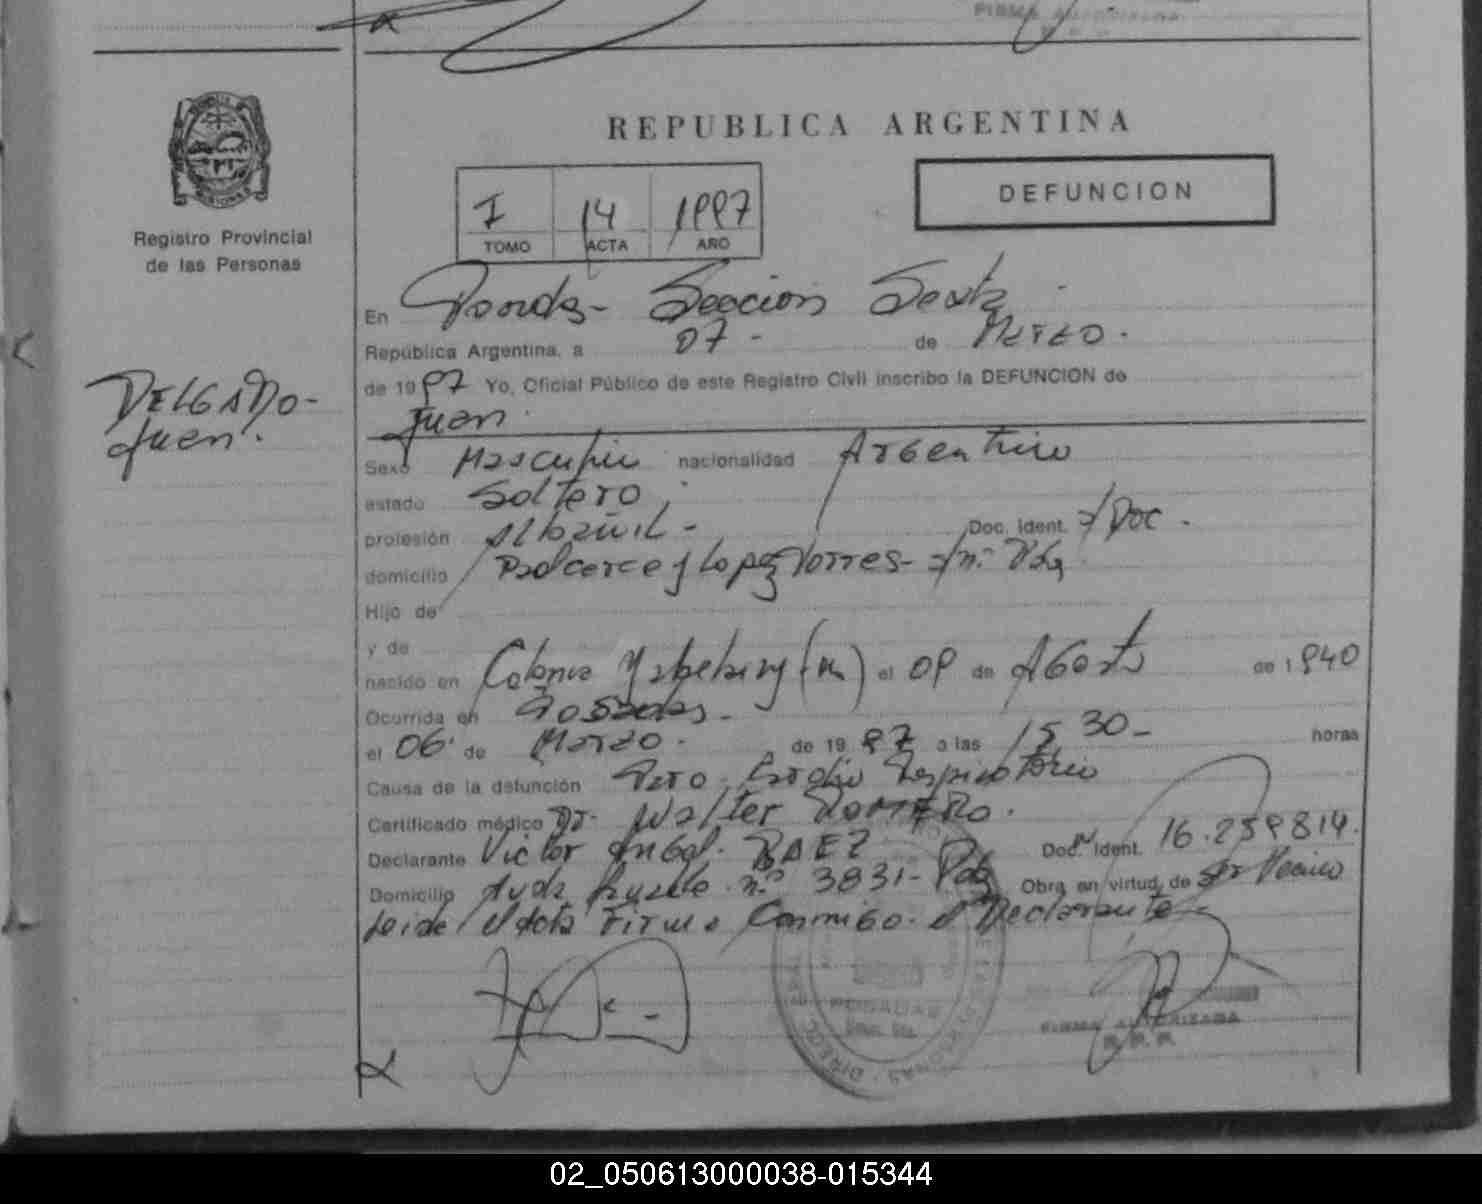 FIRMA AUTORIZADA
REPUBLICA ARGENTINA
DEFUNCION
I 14 1997
TOMO ACTA AÑO
Registro Provincial
de las Personas
En Posadas - Seccion Sexta
República Argentina, a 07 - de Marzo.
de 1997 Yo, Oficial Público de este Registro Civil inscribo la DEFUNCION de
DELGADO-
Juan.
Juan
Sexo Masculino nacionalidad Argentino
estado Soltero
profesión Albañil - Doc. Ident. s/Doc.
domicilio y Lopez Torres - s/nº
Hijo de
y de
nacido en Colonia (m) el 09 de Agosto de 1940
Ocurrida en Posadas -
el 06 de Marzo. de 1997 a las 15 30 - horas
Causa de la defunción Paro Cardio Respiratorio
Certificado médico Dr. Walter ROMERO.
Declarante Victor Angel BAEZ Doc. Ident. 16.259814.
Domicilio Avda nº 3831 - Pdas Obra en virtud de ser
Leida el Acta Firma Conmigo el Declarante -
POSADAS
FIRMA AUTORIZADA
R. P. P.
02_050613000038-015344